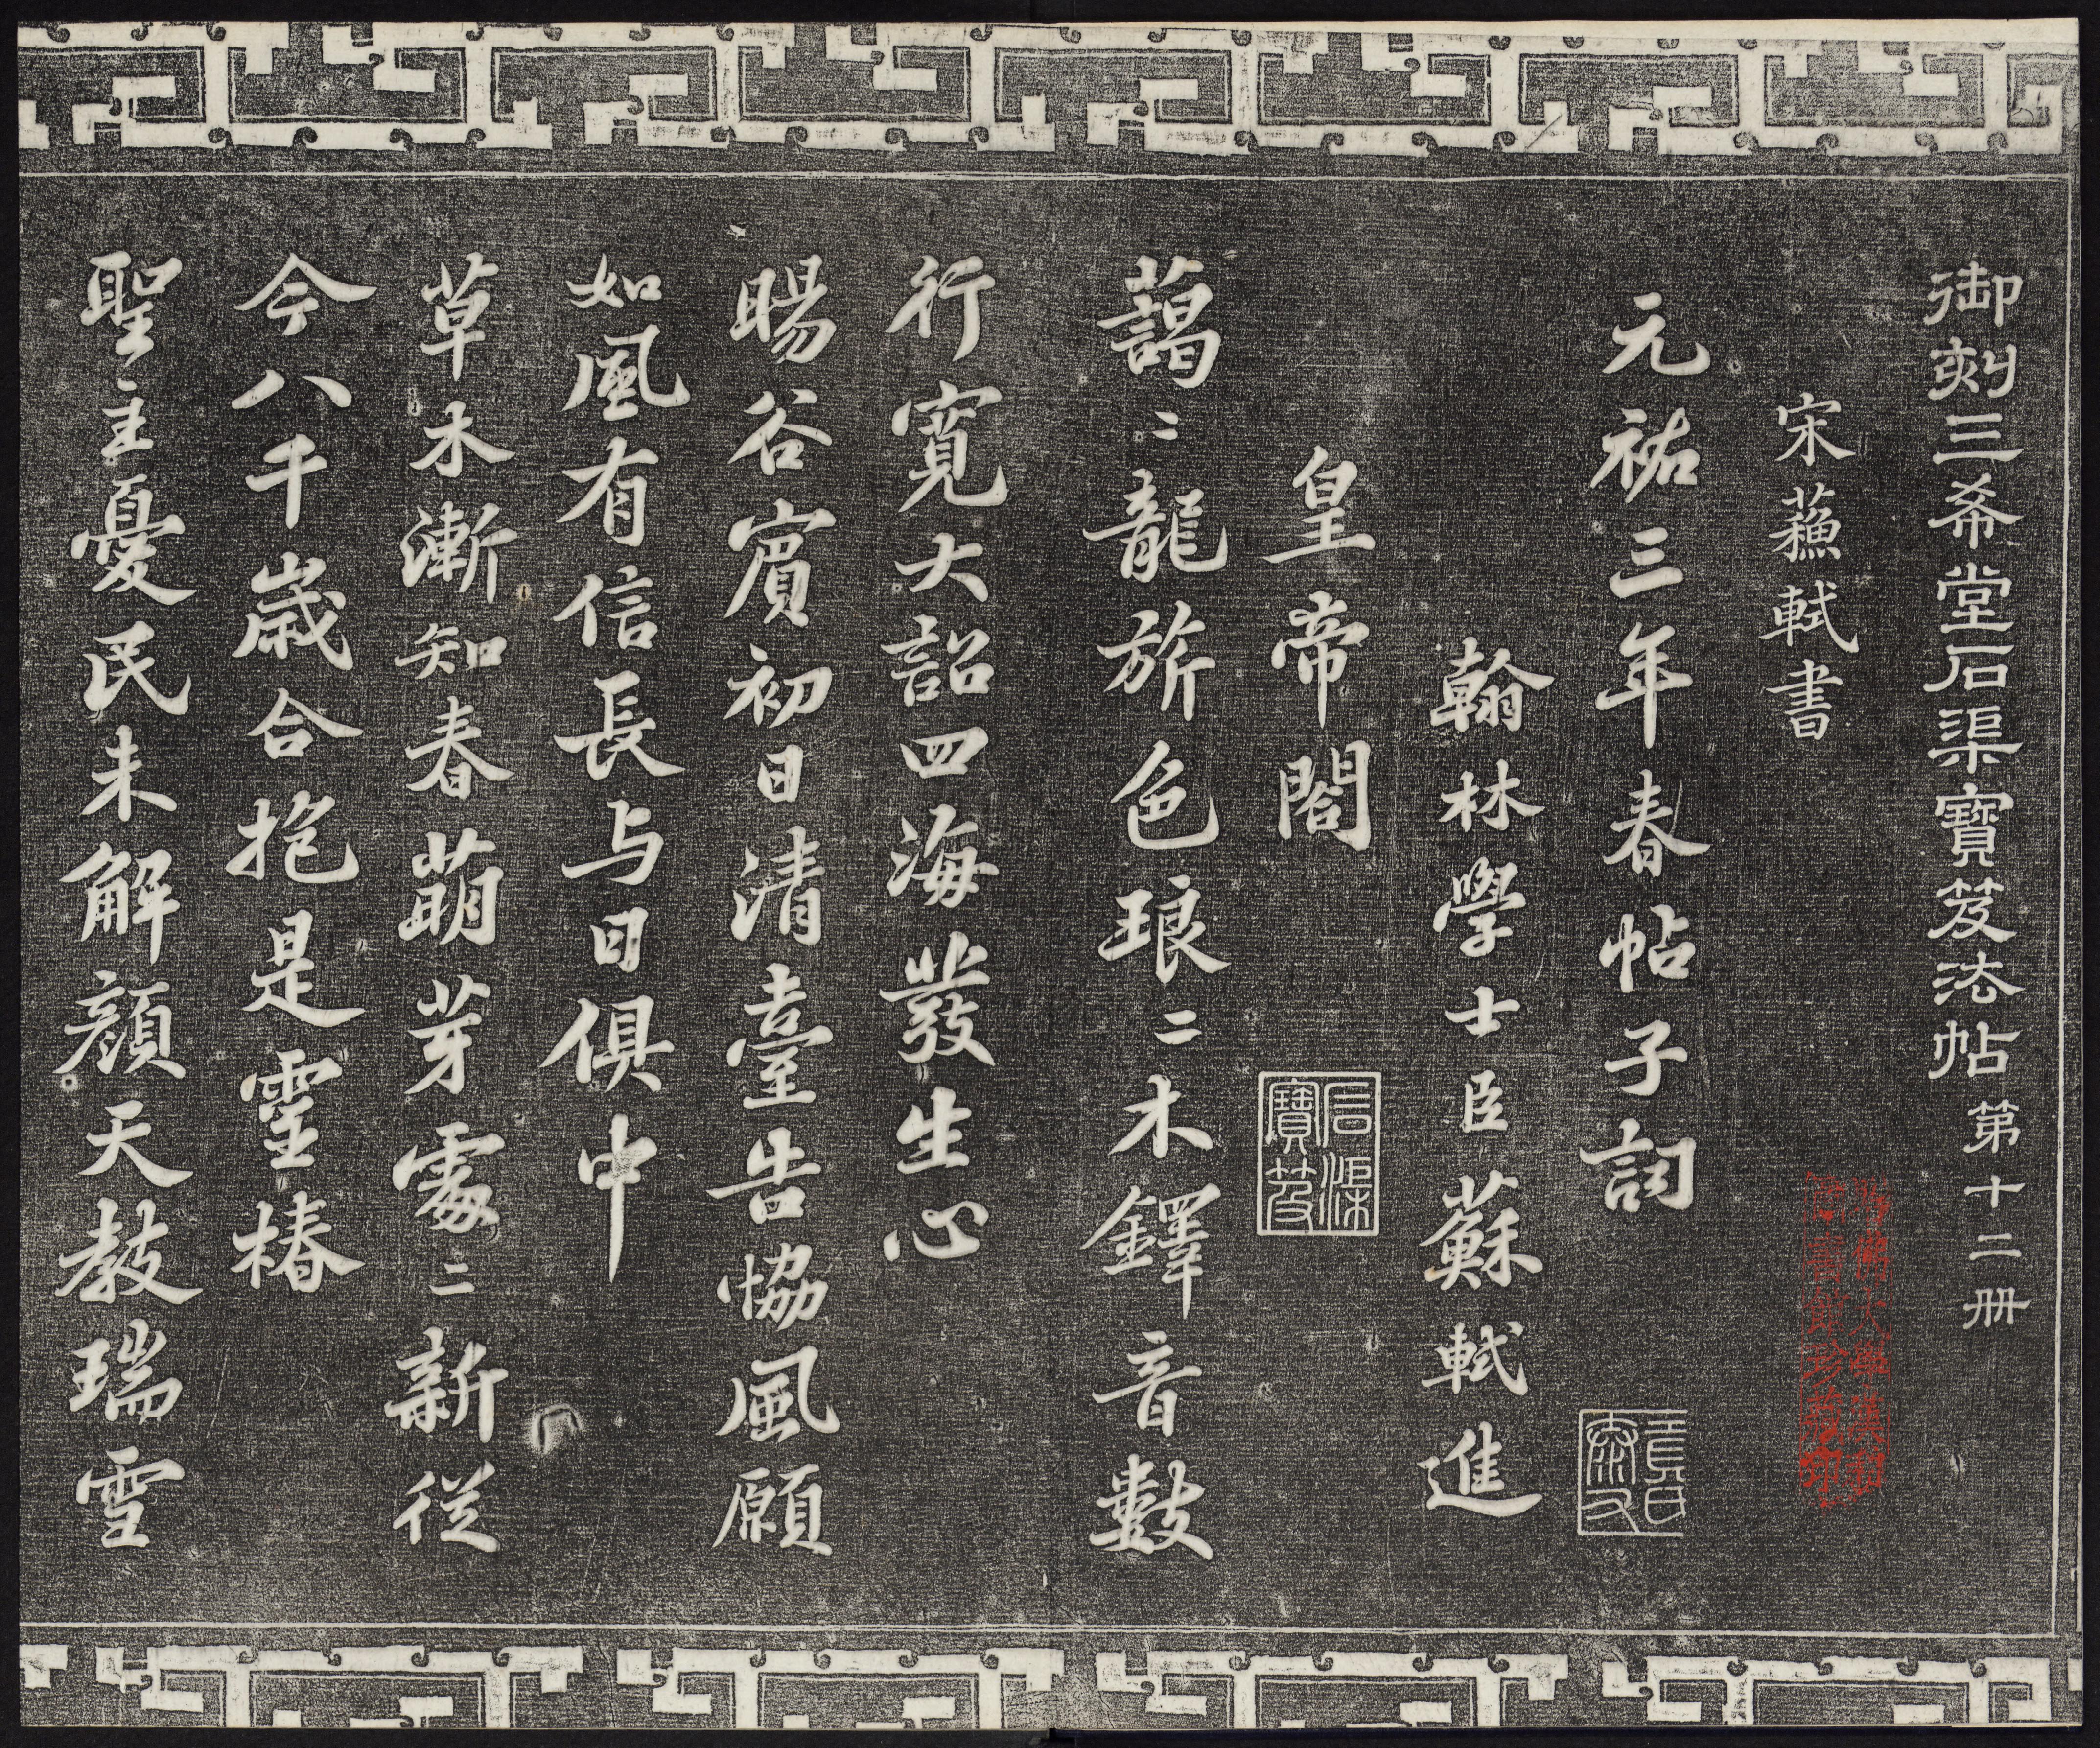 御刻三希堂石渠寶笈法帖第十二册
宋蘓軾書
元祐三年春帖子詞
翰林學士臣蘇軾進
皇帝閤
藹〻龍旂色琅〻木鐸音數
行寛大詔四海發生心
暘谷賔初日清臺告協風願
如風有信長与日俱中
草木漸知春萌芽處〻新從
今八千歳合抱是靈椿
聖主憂民未解顔天教瑞雪
石渠寶笈
哈佛大學漢和圖書館珍藏印